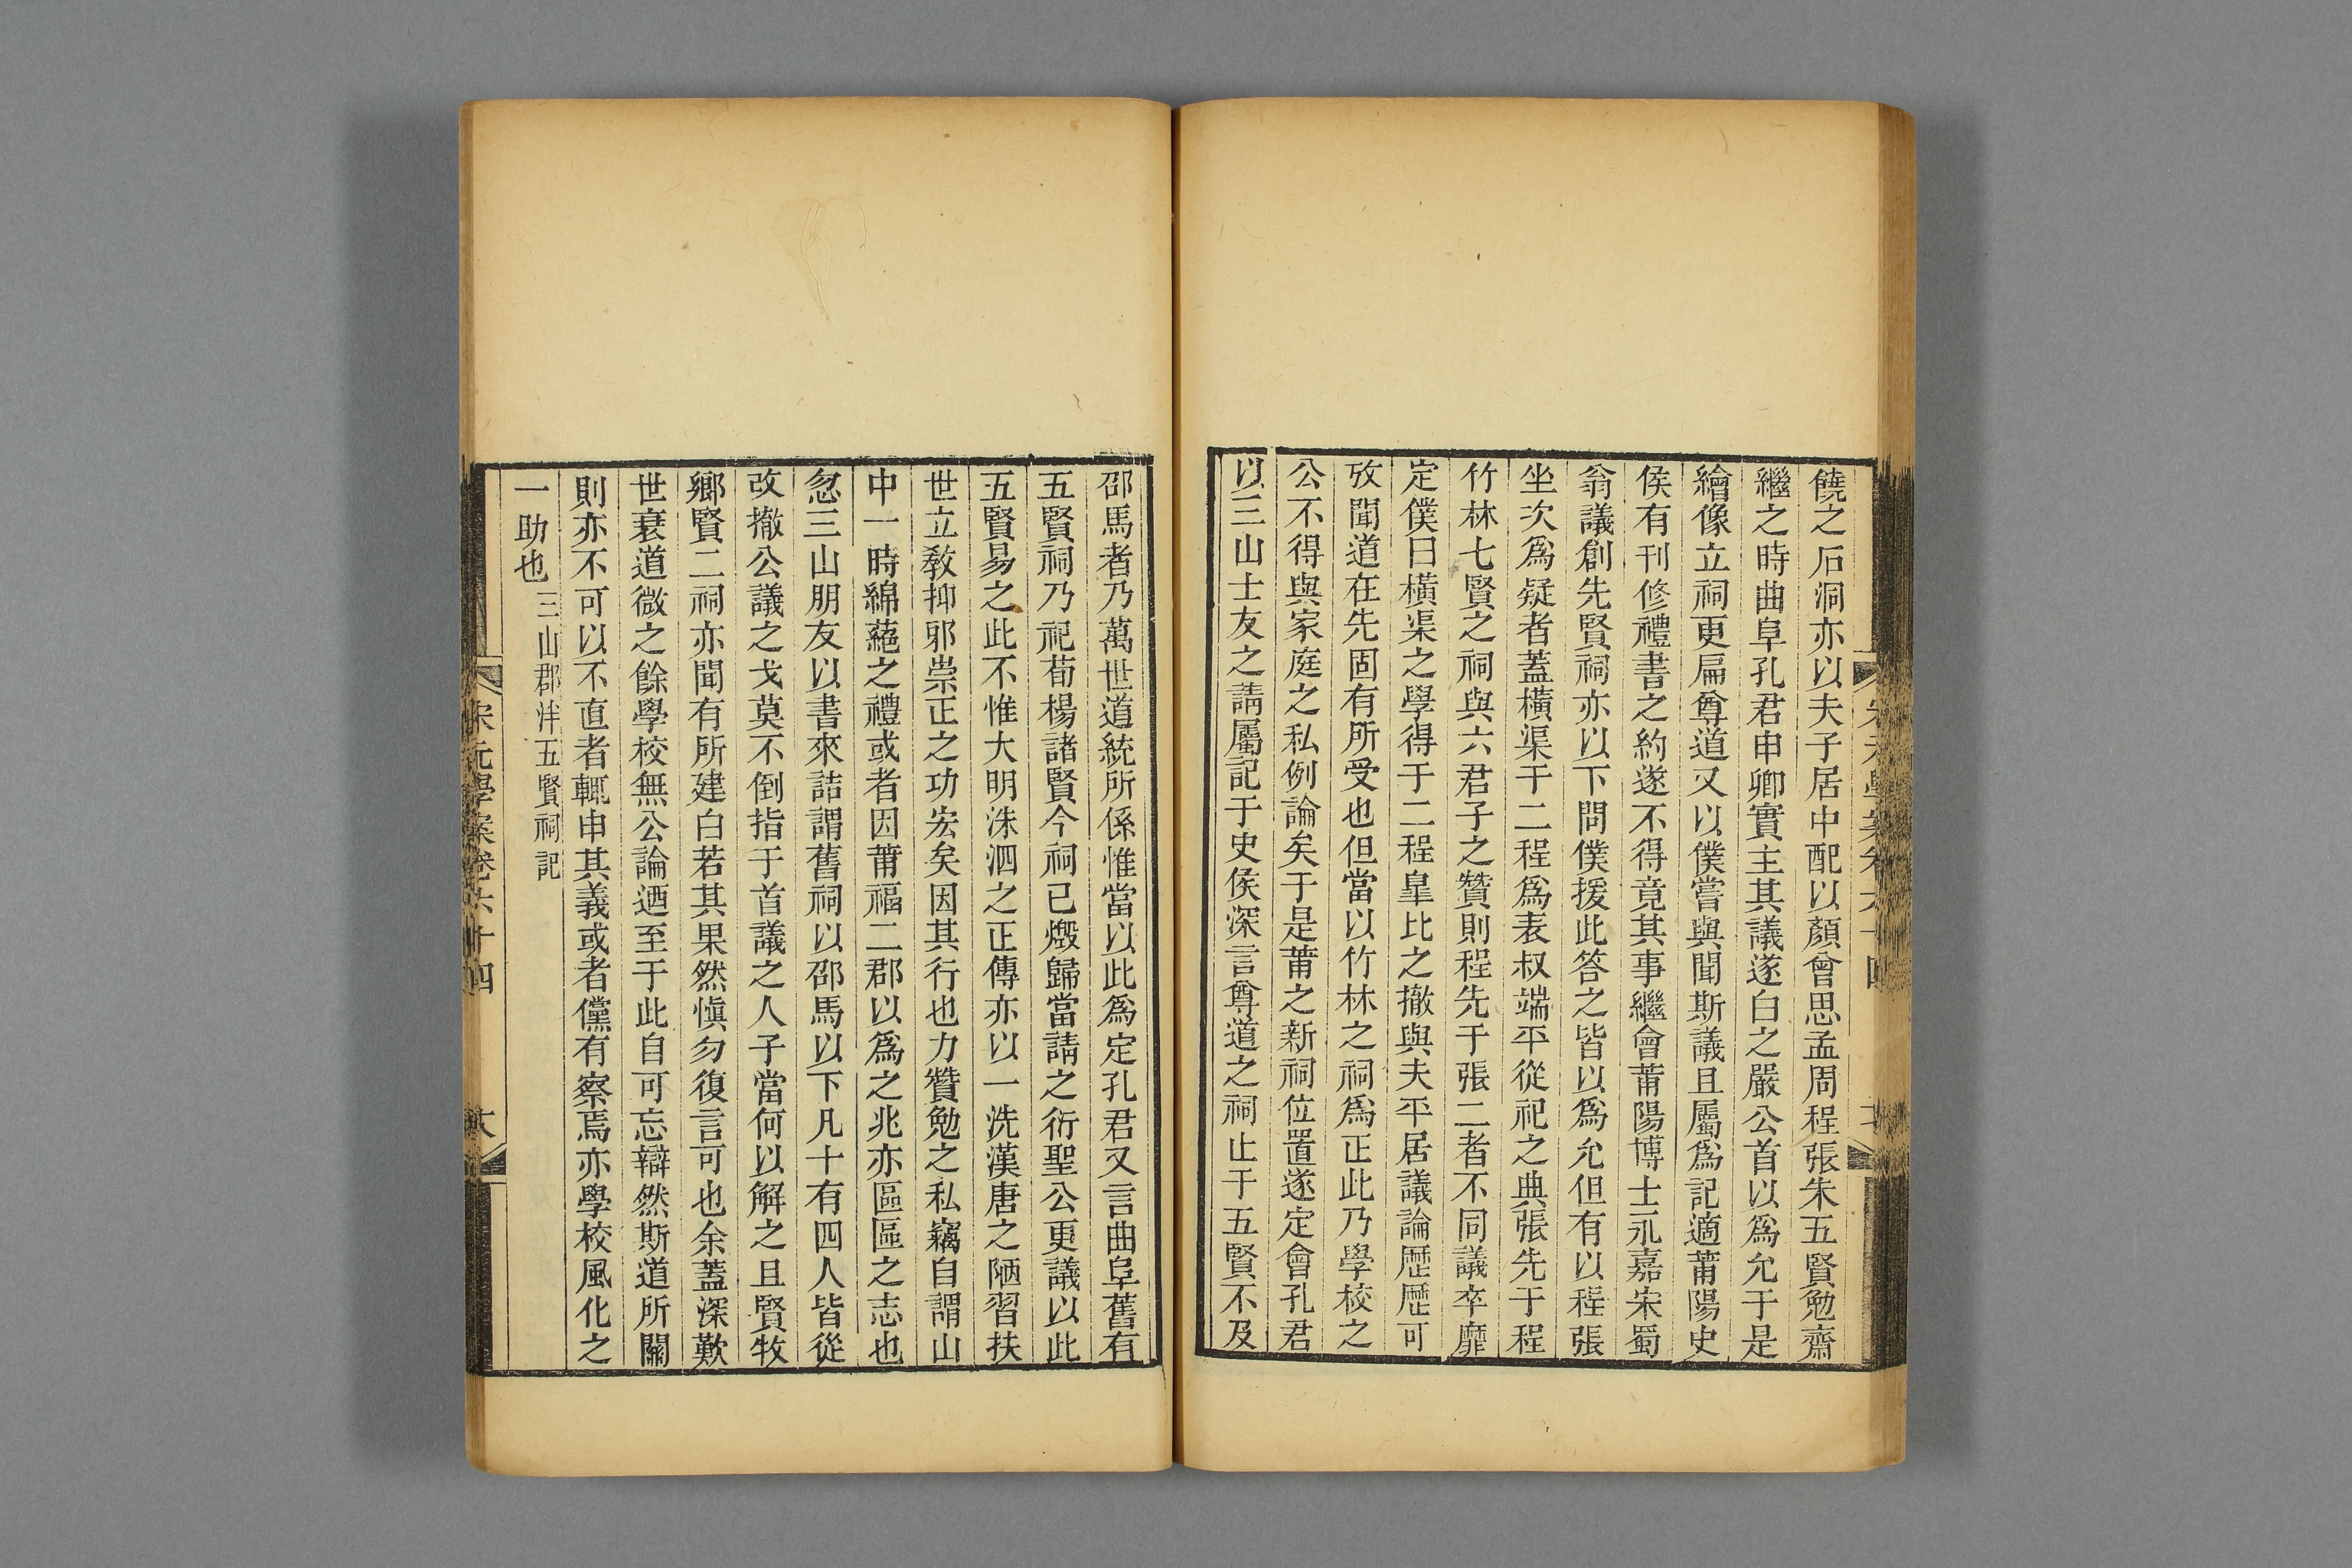 饒之石洞亦以夫子居中配以顏曾思孟周程張朱五賢勉齋
繼之時曲阜孔君申卿實主其議遂白之嚴公首以爲允于是
繪像立祠更扁尊道又以僕嘗與聞斯議且屬爲記適莆陽史
侯有刊修禮書之約遂不得竟其事繼會莆陽博士永嘉宋蜀
翁議創先賢祠亦以下問僕援此答之皆以爲允但有以程張
坐次爲疑者蓋橫渠于二程爲表叔端平從祀之典張先于程
竹林七賢之祠與六君子之贊則程先于張二者不同議卒靡
定僕曰橫渠之學得于二程臯比之撤與夫平居議論歷歷可
攷聞道在先固有所受也但當以竹林之祠爲正此乃學校之
公不得與家庭之私例論矣于是莆之新祠位置遂定會孔君
以三山士友之請屬記于史侯深言尊道之祠止于五賢不及
邵馬者乃萬世道統所係惟當以此爲定孔君又言曲阜舊有
五賢祠乃祀荀楊諸賢今祠已燬歸當請之衍聖公更議以此
五賢易之此不惟大明洙泗之正傳亦以一洗漢唐之陋習扶
世立敎抑邪崇正之功宏矣因其行也力贊勉之私竊自謂山
中一時綿蕝之禮或者因莆福二郡以爲之兆亦區區之志也
忽三山朋友以書來詰謂舊祠以邵馬以下凡十有四人皆從
改撤公議之戈莫不倒指于首議之人子當何以解之且賢牧
鄉賢二祠亦聞有所建白若其果然愼勿復言可也余蓋深歎
世衰道微之餘學校無公論迺至于此自可忘辯然斯道所關
則亦不可以不直者輒申其義或者儻有察焉亦學校風化之
一助也三山郡泮五賢祠記
宋元學案卷六十四